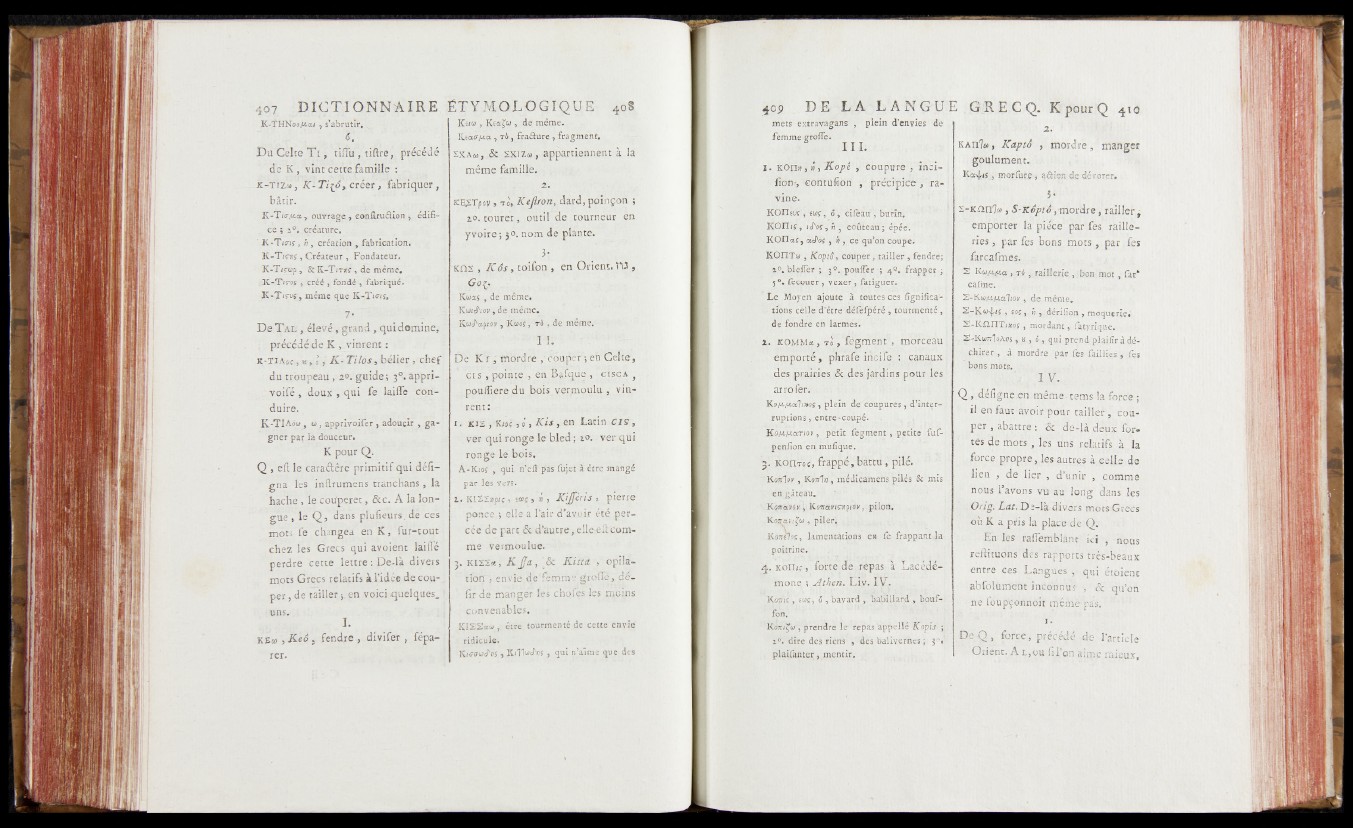 407 DICTIONNAIRE ÉTYMOLOGIQUE 408
K-THNοιμαι, s'abrutir.
6.
Du Celte TI, tiſſu, tiſtre, précédé
de K, vint cette famille :
K-TIZω, K-Tizó, créer, fabriquer,
bâtir.
K-Τισμα, ouvrage, conſtruction, édifi-
ce ; 2°. créature.
K-Τισις, ἡ, création, fabrication.
K-Τιτης, Créateur, Fondateur.
K-Τιτωρ, & K-Τιτης, de même.
K-Τιτος, créé, fondé, fabriqué.
K-Τιτυς, même que K-Τισις.
7.
De TAL, élevé, grand, qui domine,
précédé de K, vinrent :
K-TIΛος, ȣ, ὁ, K-Tilos, bélier, chef
du troupeau, 2°. guide ; 3°. appri-
voiſé, doux, qui ſe laiſſe con-
duire.
K-TIΛοω, ω, apprivoiſer, adoucir, ga-
gner par la douceur.
K pour Q.
Q, eſt le caractère primitif qui déſi-
gna les inſtrumens tranchans, la
hache, le couperet, &c. A la lon-
gue, le Q, dans pluſieurs de ces
mots ſe changea en K, ſur-tout
chez les Grecs qui avoient laiſſé
perdre cette lettre : De-là divers
mots Grecs relatifs à l'idée de cou-
per, de tailler ; en voici quelques-
uns.
I.
KEω, Keó, fendre, diviſer, ſépa-
rer.
Κειω, Κεαζω, de même.
Κεασμα, τὸ, fracture, fragment.
ΣΧΑω, & ΣΧΙΖω, appartiennent à la
même famille.
2.
ΚΕΣΤρον, τὸ, Keſtron, dard, poinçon ;
2°. touret, outil de tourneur en
yvoire ; 3°. nom de plante.
3.
ΚΩΣ, Kós, toiſon, en Orient. גז,
Goz.
Κωας, de même.
Κωδιον, de même.
Κωδαριον, Κωος, τὸ, de même.
II.
De KI, mordre, couper ; en Celte,
CIS, pointe, en Baſque, CISCA,
pouſſiere du bois vermoulu, vin-
rent :
1. ΚΙΣ, Κιος, ὁ, Kis, en Latin CIS,
ver qui ronge le bled ; 2°. ver qui
ronge le bois.
A-Κιος, qui n'eſt pas ſujet à être mangé
par les vers.
2. ΚΙΣΣηρις, εως, ἡ, Kiſſeris, pierre
ponce ; elle a l'air d'avoir été per-
cée de part & d'autre, elle eſt com-
me vermoulue.
3. ΚΙΣΣα, Kiſſa, & Kitta, opila-
tion ; envie de femme groſſe, dé-
ſir de manger les choſes les moins
convenables.
ΚΙΣΣαω, être tourmenté de cette envie
ridicule.
Κισσωδης, ΚιΤωδης, qui n'aime que des
409 DE LA LANGUE GRECQ. K pour Q 410
mets extravagans, plein d'envies de
femme groſſe.
III.
1. ΚΟΠη, ἡ, Kopé, coupure, inci-
ſion, contuſion, précipice, ra-
vine.
ΚΟΠευς, εως, ὁ, ciſeau, burin.
ΚΟΠις, ιδος, ἡ, coûteau ; épée.
ΚΟΠας, αδος, ἡ, ce qu'on coupe.
ΚΟΠΤω, Koptó, couper, tailler, fendre ;
2°. bleſſer ; 3°. pouſſer ; 4°. frapper ;
5°. ſecouer, vexer, fatiguer.
Le Moyen ajoute à toutes ces ſignifica-
tions celle d'être déſeſpéré, tourmenté,
de fondre en larmes.
2. ΚΟΜΜα, τὸ, ſegment, morceau
emporté, phraſe inciſe : canaux
des prairies & des jardins pour les
arroſer.
ΚομμαΤικος, plein de coupures, d'inter-
ruptions, entre-coupé.
Κομματιον, petit ſegment, petite ſuſ-
penſion en muſique.
3. ΚΟΠτος, frappé, battu, pilé.
ΚοπΤον, ΚοπΤη, médicamens pilés & mis
en gâteau.
Κοπανον, Κοπανιστηριον, pilon.
Κοπανιζω, piler.
ΚοπεΤος, lamentations en ſe frappant la
poitrine.
4. ΚΟΠις, ſorte de repas à Lacédé-
mone ; Athen. Liv. IV.
Κοπις, εως, ὁ, bavard, babillard, bouf-
fon.
Κοπιζω, prendre le repas appellé Kopis ;
2°. dire des riens, des balivernes ; 3°.
plaiſanter, mentir.
2.
ΚΑΠΤω, Kaptó, mordre, manger
goulument.
Καψις, morſure, action de dévorer.
3.
Σ-ΚΩΠΤω, S-Kóptó, mordre, railler,
emporter la piéce par ſes raille-
ries, par ſes bons mots, par ſes
ſarcaſmes.
Σ-Κωμμα, τὸ, raillerie, bon mot, ſar-
caſme.
Σ-ΚωμμαΤιον, de même.
Σ-Κωψις, εως, ἡ, dériſion, moquerie.
Σ-ΚΩΠΤικος, mordant, ſatyrique.
Σ-ΚωπΤιλος, ȣ, ὁ, qui prend plaiſir à dé-
chirer, à mordre par ſes ſaillies, ſes
bons mots.
IV.
Q, déſigne en même tems la force ;
il en faut avoir pour tailler, cou-
per, abattre : & de-là deux ſor-
tes de mots, les uns relatifs à la
force propre, les autres à celle de
lien, de lier, d'unir, comme
nous l'avons vu au long dans les
Orig. Lat. De-là divers mots Grecs
où K a pris la place de Q.
En les raſſemblant ici, nous
reſtituons des rapports très-beaux
entre ces Langues, qui étoient
abſolument inconnus, & qu'on
ne ſoupçonnoit même pas.
1.
De Q, force, précédé de l'article
Orient. AL, ou ſi l'on aime mieux,